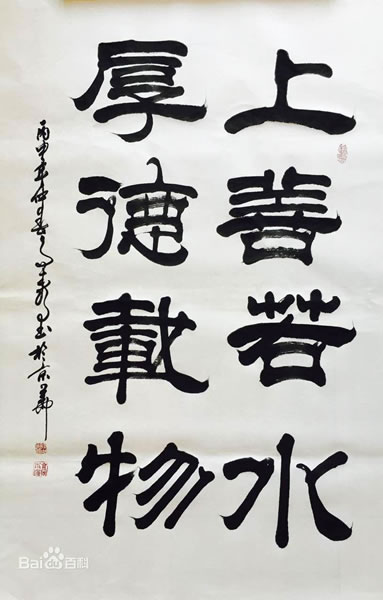 上善若水
厚德載物
丙申年仲春之月於京華
Bai百科